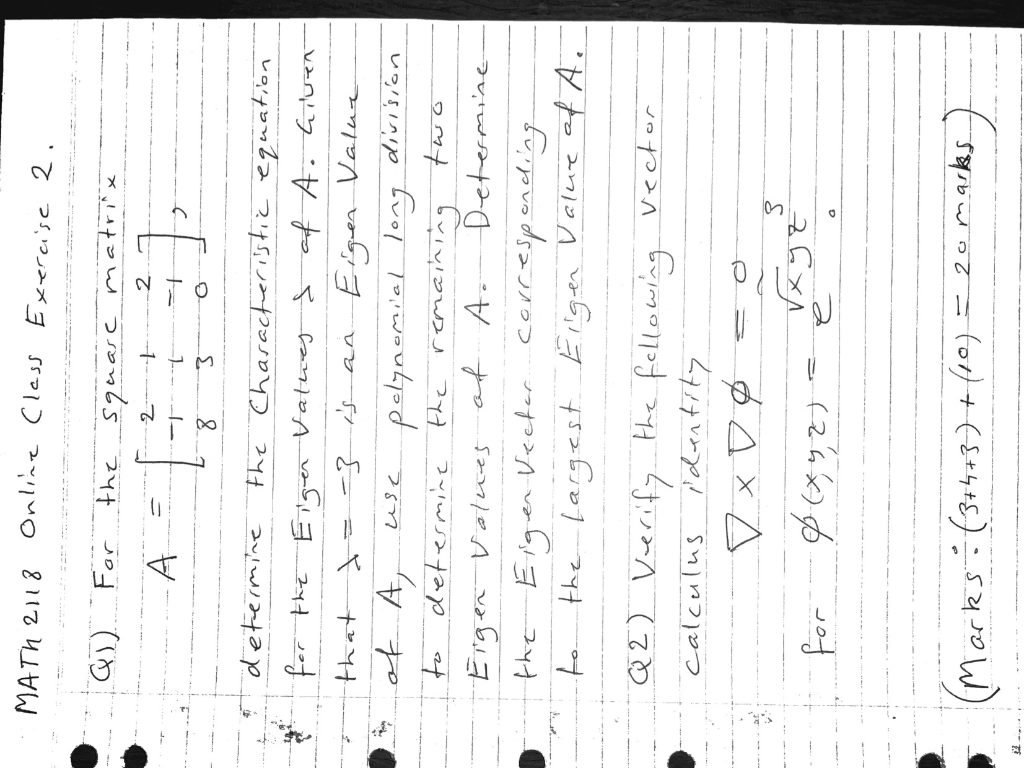 MATH 2118 Online Class Exercise 2.
Q1) For the square matrix
A = [ 2 1 2
-1 1 -1
8 3 0 ],
determine the Characteristic equation
for the Eigen Values λ of A. Given
that λ = -3 is an Eigen Value
of A, use polynomial long division
to determine the remaining two
Eigen Values of A. Determine
the Eigen Vector corresponding
to the largest Eigen Value of A.
Q2) Verify the following vector
calculus identity
∇ × ∇ φ = 0
for φ(x,y,z) = e^{√x y z^3}.
(Marks: (3+4+3) + (10) = 20 marks)